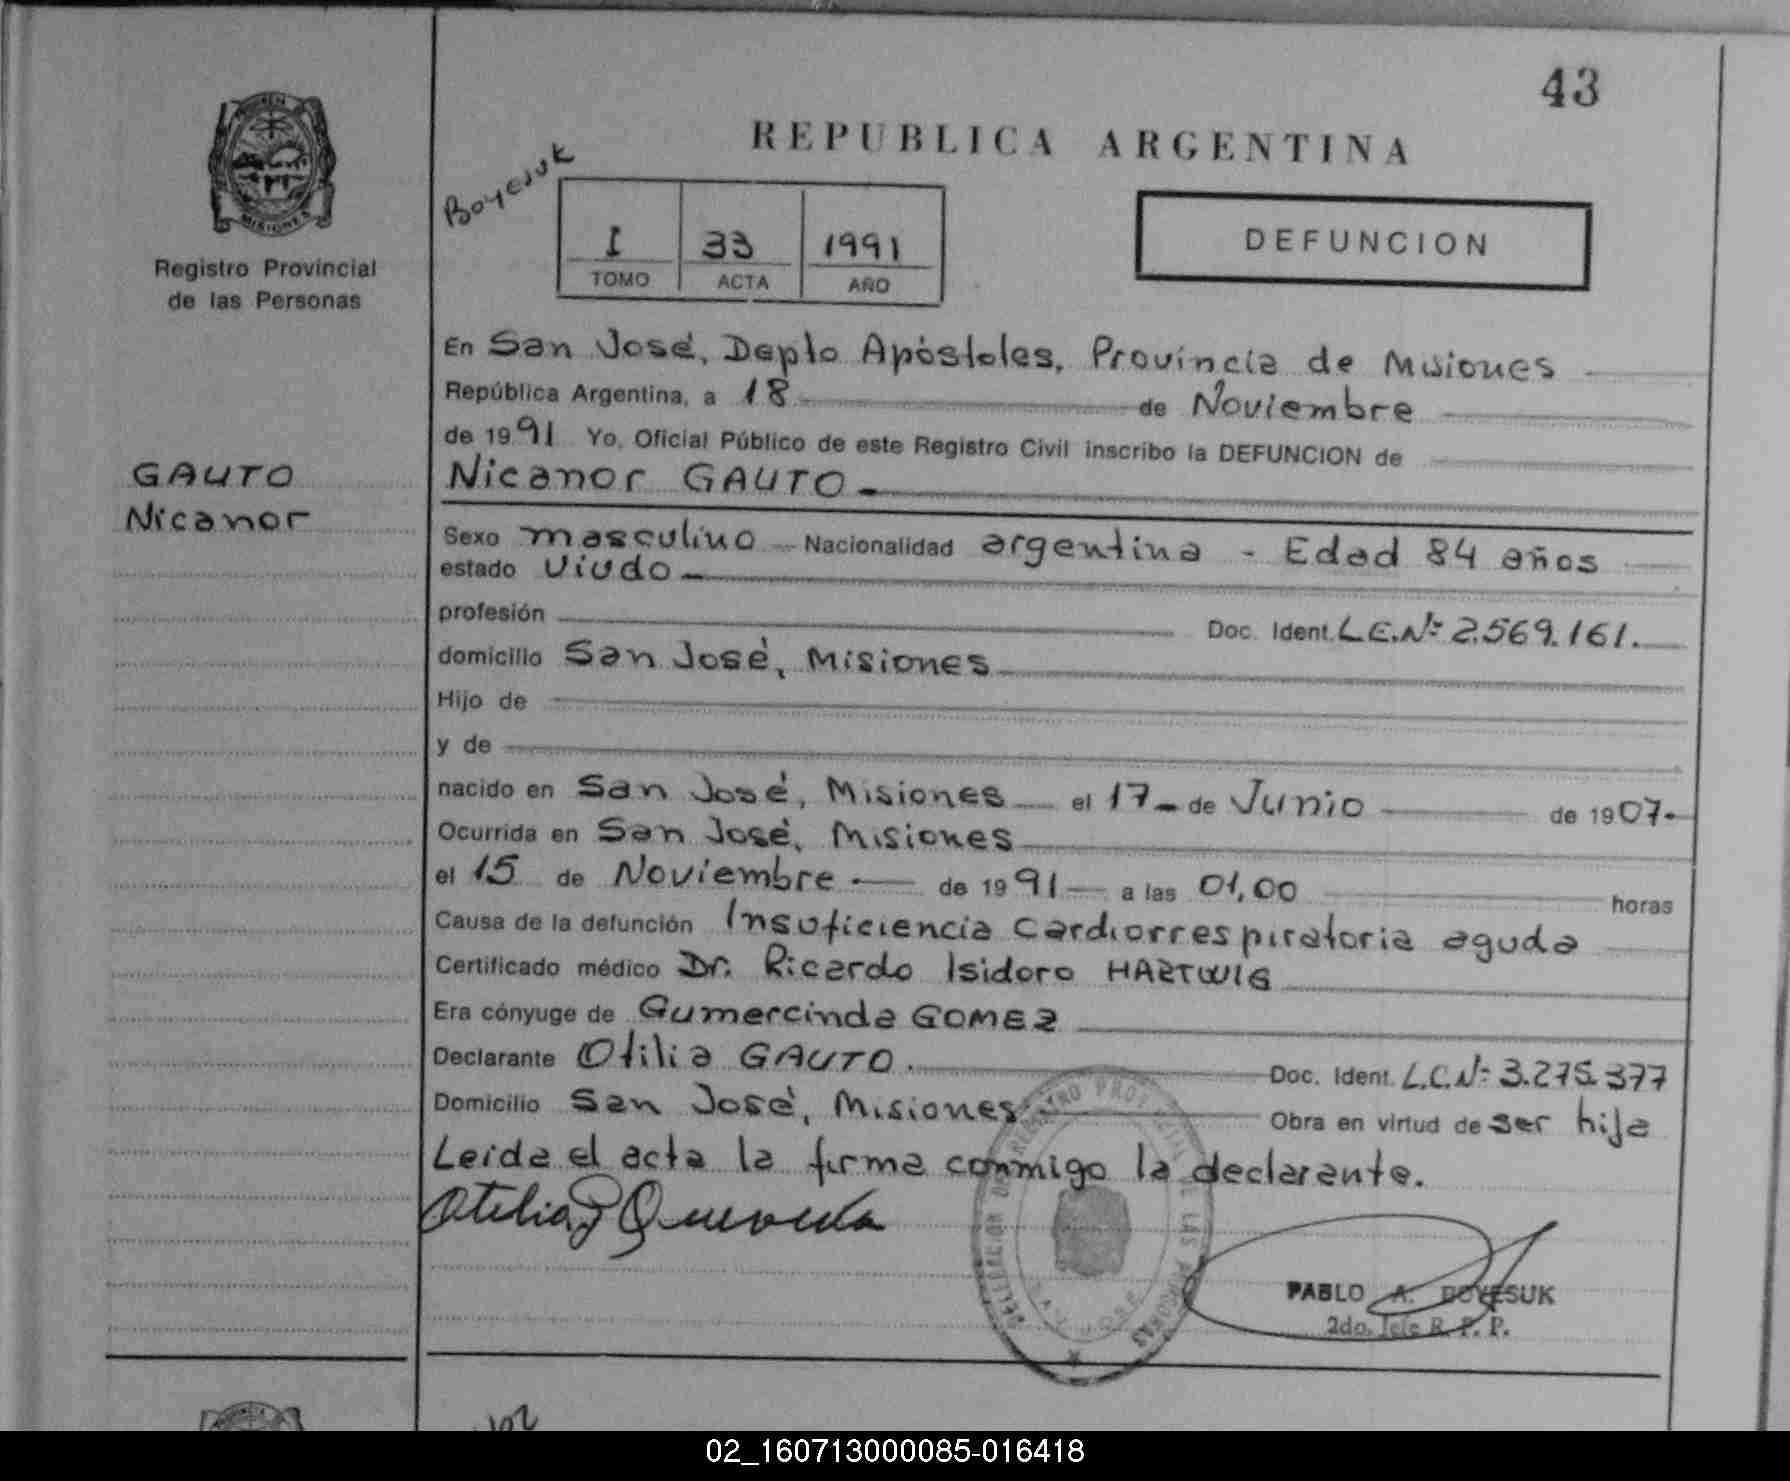 43
REPUBLICA ARGENTINA
Boyesuk
PROVINCIA
MISIONES
Registro Provincial
de las Personas
I 33 1991
TOMO ACTA AÑO
DEFUNCION
GAUTO
Nicanor
En San José, Depto Apóstoles, Provincia de Misiones
República Argentina, a 18 de Noviembre
de 1991 Yo, Oficial Público de este Registro Civil inscribo la DEFUNCION de
Nicanor GAUTO.-
Sexo masculino Nacionalidad argentina - Edad 84 años
estado Viudo.-
profesión Doc. Ident. L.E.Nº 2.569.161.
domicilio San José, Misiones
Hijo de
y de
nacido en San José, Misiones el 17 de Junio de 1907.-
Ocurrida en San José, Misiones
el 15 de Noviembre de 1991 a las 01,00 horas
Causa de la defunción Insuficiencia cardiorrespiratoria aguda
Certificado médico Dr. Ricardo Isidoro HARTWIG
Era cónyuge de Gumercinda GOMEZ
Declarante Otilia GAUTO. Doc. Ident. L.C.Nº 3.275.377
Domicilio San José, Misiones Obra en virtud de ser hija
Leida el acta la firma conmigo la declarante.
DELEGACION DEL REGISTRO PROVINCIAL DE LAS PERSONAS
SAN JOSE
PABLO A. BOYESUK
2do. Jefe R. P. P.
02_160713000085-016418